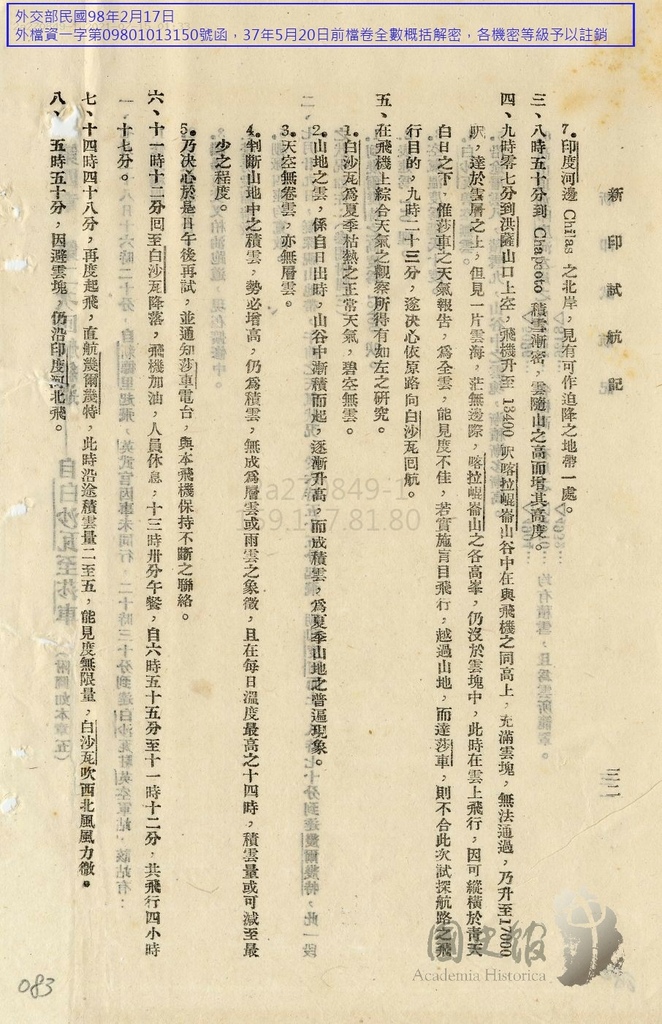 外交部民國98年2月17日
外檔資一字第09801013150號函，37年5月20日前檔卷全數概括解密，各機密等級予以註銷
新印試航記
三二
7.印度河邊 Chilas 之北岸，見有可作迫降之地帶一處。
三、八時五十分到 Chapeoto 積雲漸密，雲隨山之高而增其高度。
四、九時零七分到洪薩山口上空，飛機升至 13400 呎喀拉崐崙山谷中在與飛機之同高上，充滿雲塊，無法通過，乃升至17000
呎，達於雲層之上，但見一片雲海，茫無邊際，喀拉崐崙山之各高峯，仍沒於雲塊中，此時在雲上飛行，因可縱橫於青天
白日之下，惟莎車之天氣報告，為全雲，能見度不佳，若實施盲目飛行，越過山地，而達莎車，則不合此次試探航路之飛
行目的，九時二十三分，遂決心依原路向白沙瓦囘航。
五、在飛機上綜合天氣之觀察所得有如左之研究。
1.白沙瓦為夏季枯熱之正常天氣，碧空無雲。
2.山地之雲，係自日出時，山谷中漸積而起，逐漸升高，而成積雲，為夏季山地之普遍現象。
3.天空無卷雲，亦無層雲。
4.判斷山地中之積雲，勢必增高，仍為積雲，無成為層雲或雨雲之象徵，且在每日溫度最高之十四時，積雲量或可減至最
少之程度。
5.乃決心於是日午後再試，並通知莎車電台，與本飛機保持不斷之聯絡。
六、十一時十二分囘至白沙瓦降落，飛機加油，人員休息，十三時卅分午餐，自六時五十五分至十一時十二分，共飛行四小時
十七分。
七、十四時四十八分，再度起飛，直航幾爾幾特，此時沿途積雲量二至五，能見度無限量，白沙瓦吹西北風風力微。
八、五時五十分，因避雲塊，仍沿印度河北飛。
國史館
Academia Historica
083